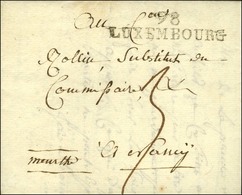 Au
98
LUXEMBOURG
Substitut du
Commissaire
3
meurthe
A Nancy